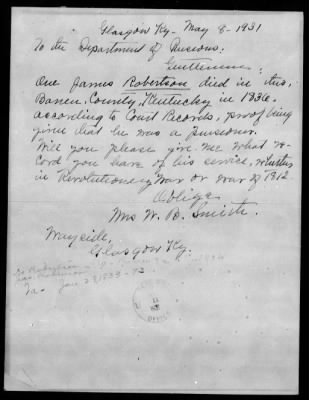 Glasgow Ky - May 8 - 1931
To the Department of Pensions:
Gentlemen:
One James Robertson died in this,
Barren, County, Kentucky in 1836.
according to Court Records, proof being
given that he was a pensioner.
Will you please give me what re-
cord you have of his service, whether
in Revolutionary War or War of 1812
Oblige
Mrs W. B. Smith.
Wayside,
Glasgow Ky.